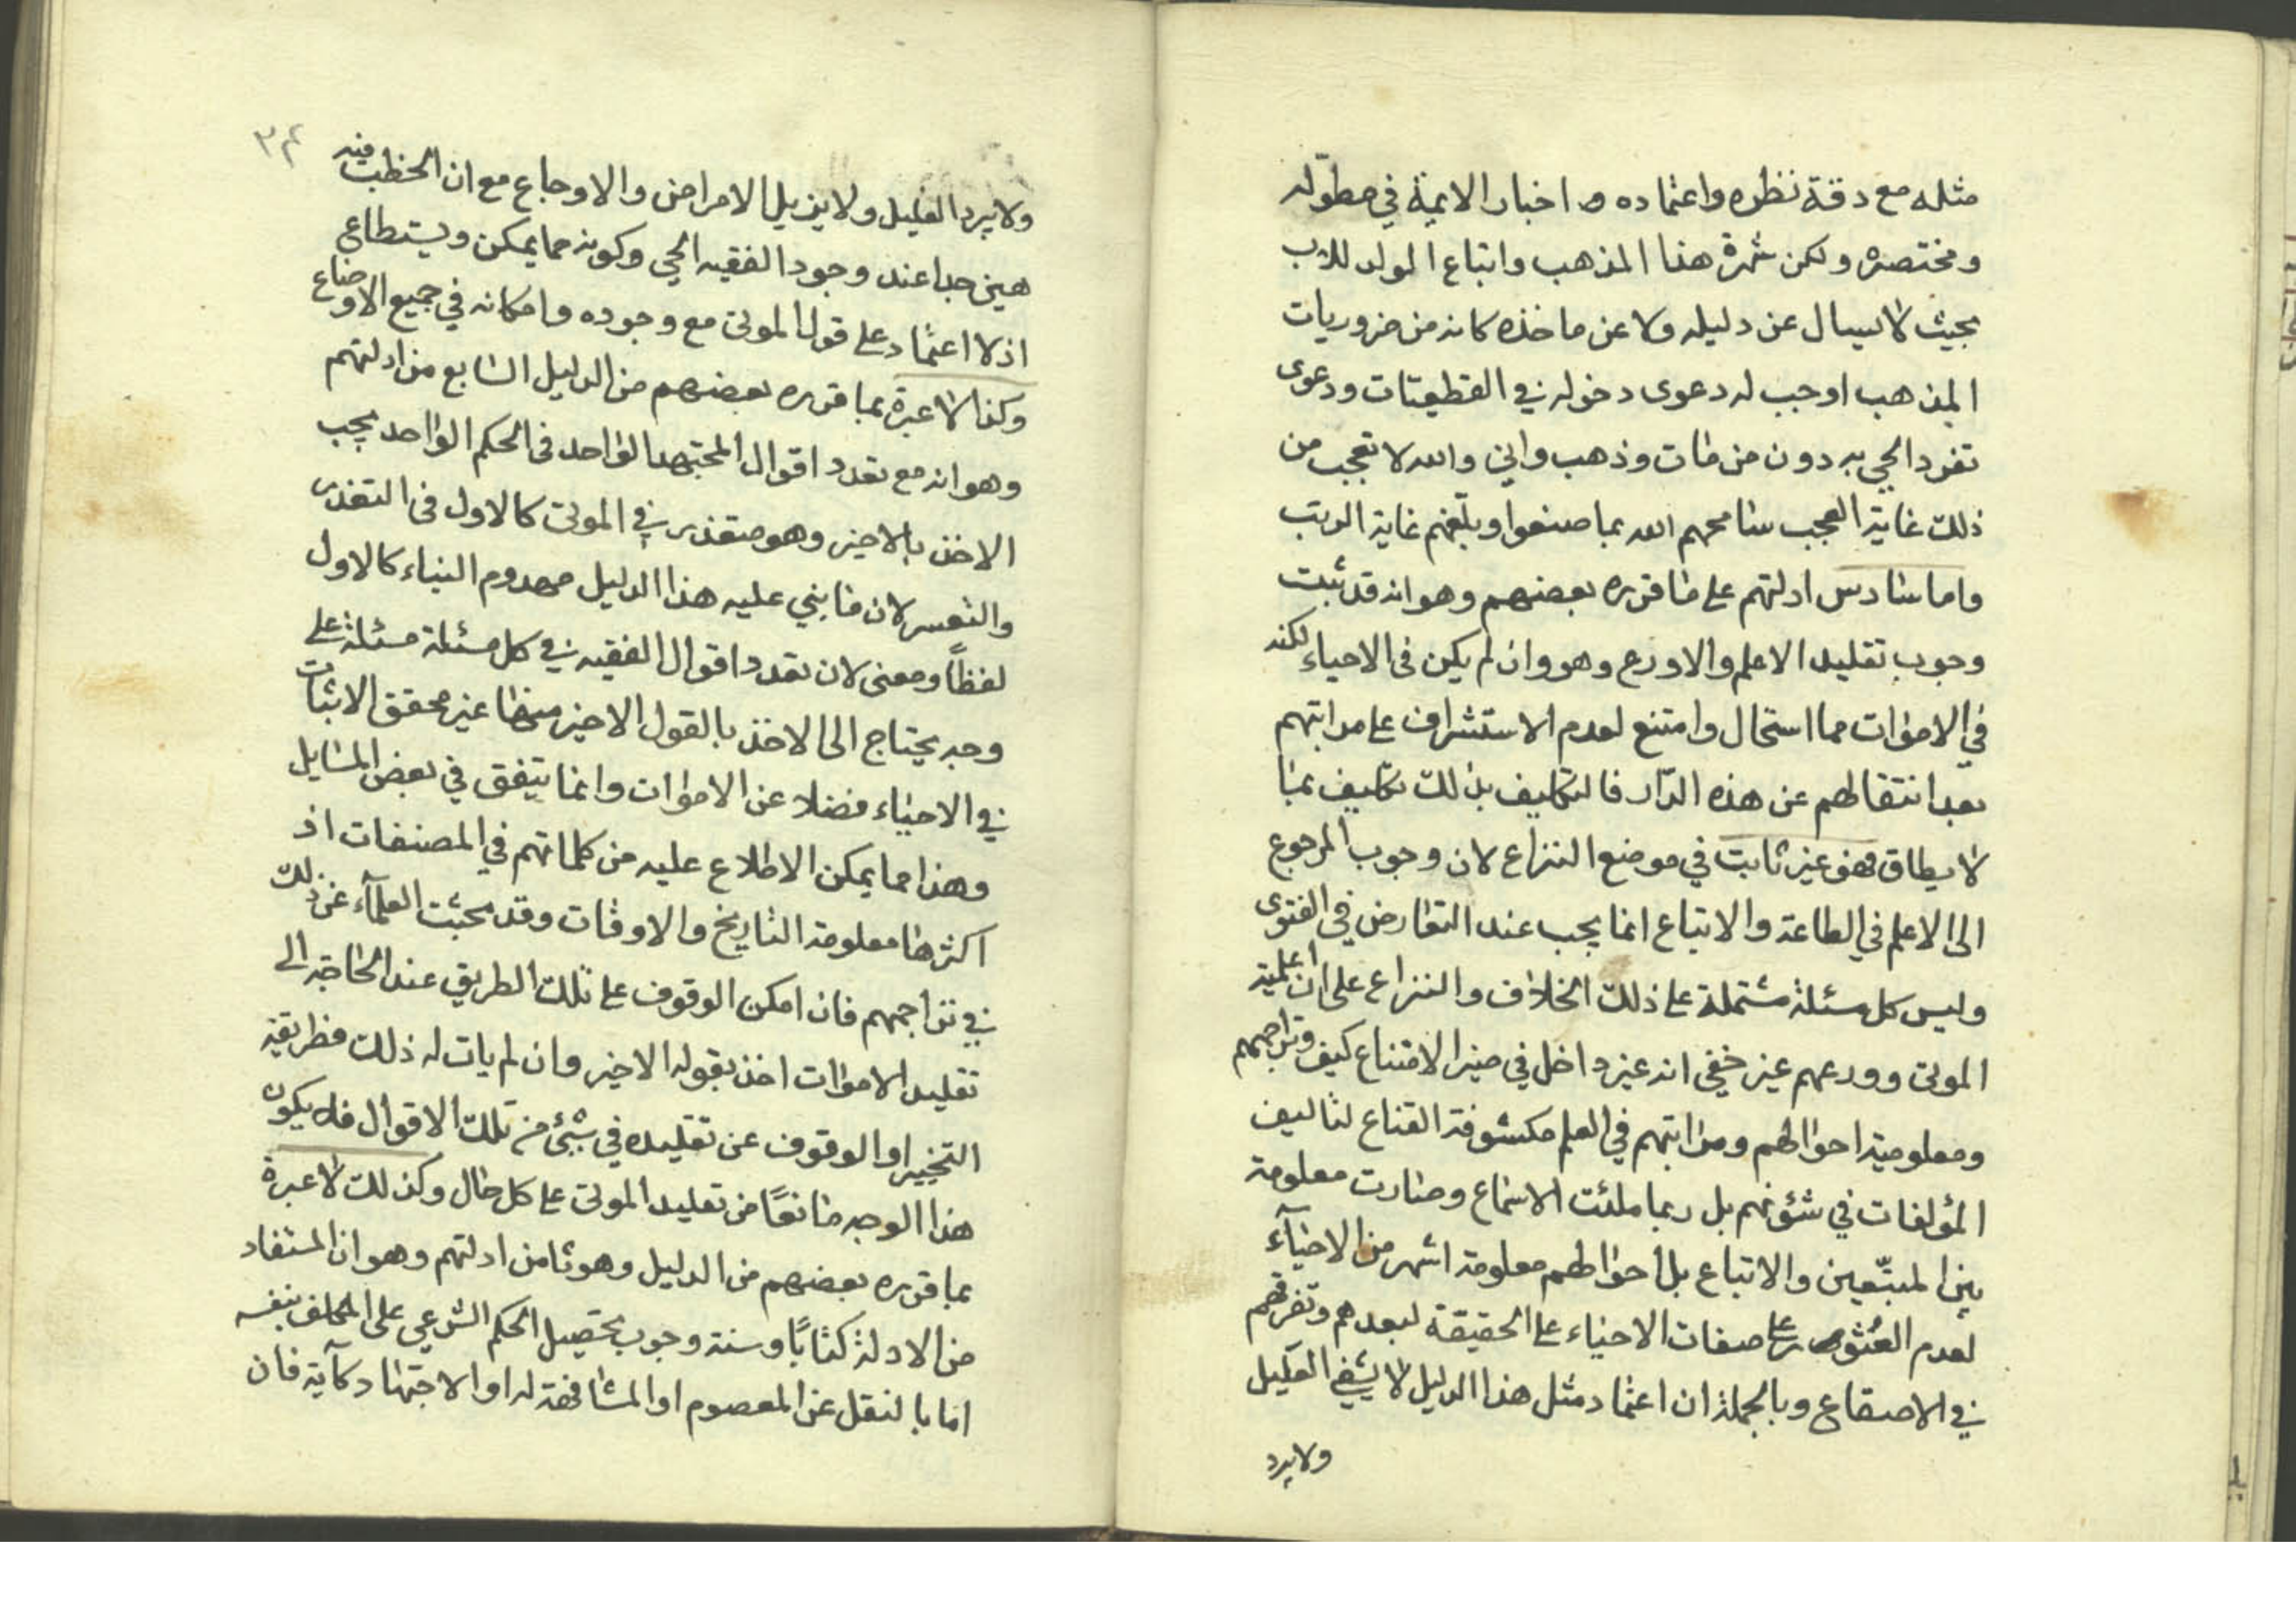 مثله مع دقة نظره واعتماده اخبار الايمة في مطوّله
ومختصره ولكن ثمرة هذا المذهب واتباع الولد للاب
بحيث لا يسال عن دليله ولا عن ماخذه كانه من ضروريات
المذهب اوجب له دعوى دخوله في القطعيّات ودعوى
تفرد الحي به دون من مات وذهب واني والله لا تعجب من
ذلك غاية العجب سامحهم الله بما صنعوا وبلّغهم غاية الرتب
واما سادس ادلتهم على ما قرره بعضهم وهو انه قد ثبت
وجوب تقليد الاعلم والاورع وهو وان لم يكن في الاحياء لكنه
في الاموات مما استحال وامتنع لعدم الاستشراف على مراتبهم
بعد انتقالهم عن هذه الدّار فالتكليف بذلك تكليف بما
لا يطاق فهو غير ثابت في موضع النزاع لان وجوب الرجوع
الى الاعلم في الطاعة والاتباع انما يجب عند التعارض في الفتوى
وليس كل مسئلة مشتملة على ذلك الخلاف والنزاع على ان اعلمية
الموتى وورعهم غير خفي انه غير داخل في حيز الامتناع كيف وتراجمهم
ومعلومية احوالهم ومراتبهم في العلم مكشوفة القناع لتاليف
المؤلفات في شئونهم بل ربما ملئت الاسماع وصارت معلومة
بين المتبّعين والاتباع بل احوالهم معلومة اشهر من الاحيآء
لعدم العثور على صفات الاحياء على الحقيقة لبعدهم وتفرقهم
في الاصقاع وبالجملة ان اعتماد مثل هذا الدليل لا يشفي العليل
ولا يبرد
٣٤
ولا يبرد الغليل ولا يزيل الامراض والاوجاع مع ان الخطب فيه
هين جدا عند وجود الفقيه الحي وكونه مما يمكن ويستطاع
اذ لا اعتماد على قول الموتى مع وجوده وامكانه في جميع الاوضاع
وكذا لا عبرة بما قرره بعضهم من الدليل السابع من ادلتهم
وهو انه مع تعدد اقوال المجتهد الواحد في الحكم الواحد يجب
الاخذ بالاخير وهو متعذر في الموتى كالاول في التعذر
والتعسر لان ما بني عليه هذا الدليل مهدوم البناء كالاول
لفظاً ومعنى لان تعدد اقوال الفقيه في كل مسئلة مسئلة على
وجه يحتاج الى الاخذ بالقول الاخير منها غير محقق الاثبات
في الاحياء فضلا عن الاموات وانما يتفق في بعض المسايل
وهذا مما يمكن الاطلاع عليه من كلماتهم في المصنفات اذ
اكثرها معلومة التاريخ والاوقات وقد بحثت العلمآء عن ذلك
في تراجمهم فان امكن الوقوف على تلك الطريق عند الحاجة الى
تقليد الاموات اخذ بقوله الاخير وان لم يات له ذلك فطريقه
التخيير او الوقوف عن تقليده في شئ من تلك الاقوال فلا يكون
هذا الوجه مانعًا من تقليد الموتى على كل حال وكذلك لا عبرة
بما قرره بعضهم من الدليل وهو ثامن ادلتهم وهو ان المستفاد
من الادلة كتابًا وسنة وجوب تحصيل الحكم الشرعي على المكلف بنفسه
اما بالنقل عن المعصوم او المشافهة له او الاجتهاد كآية فان